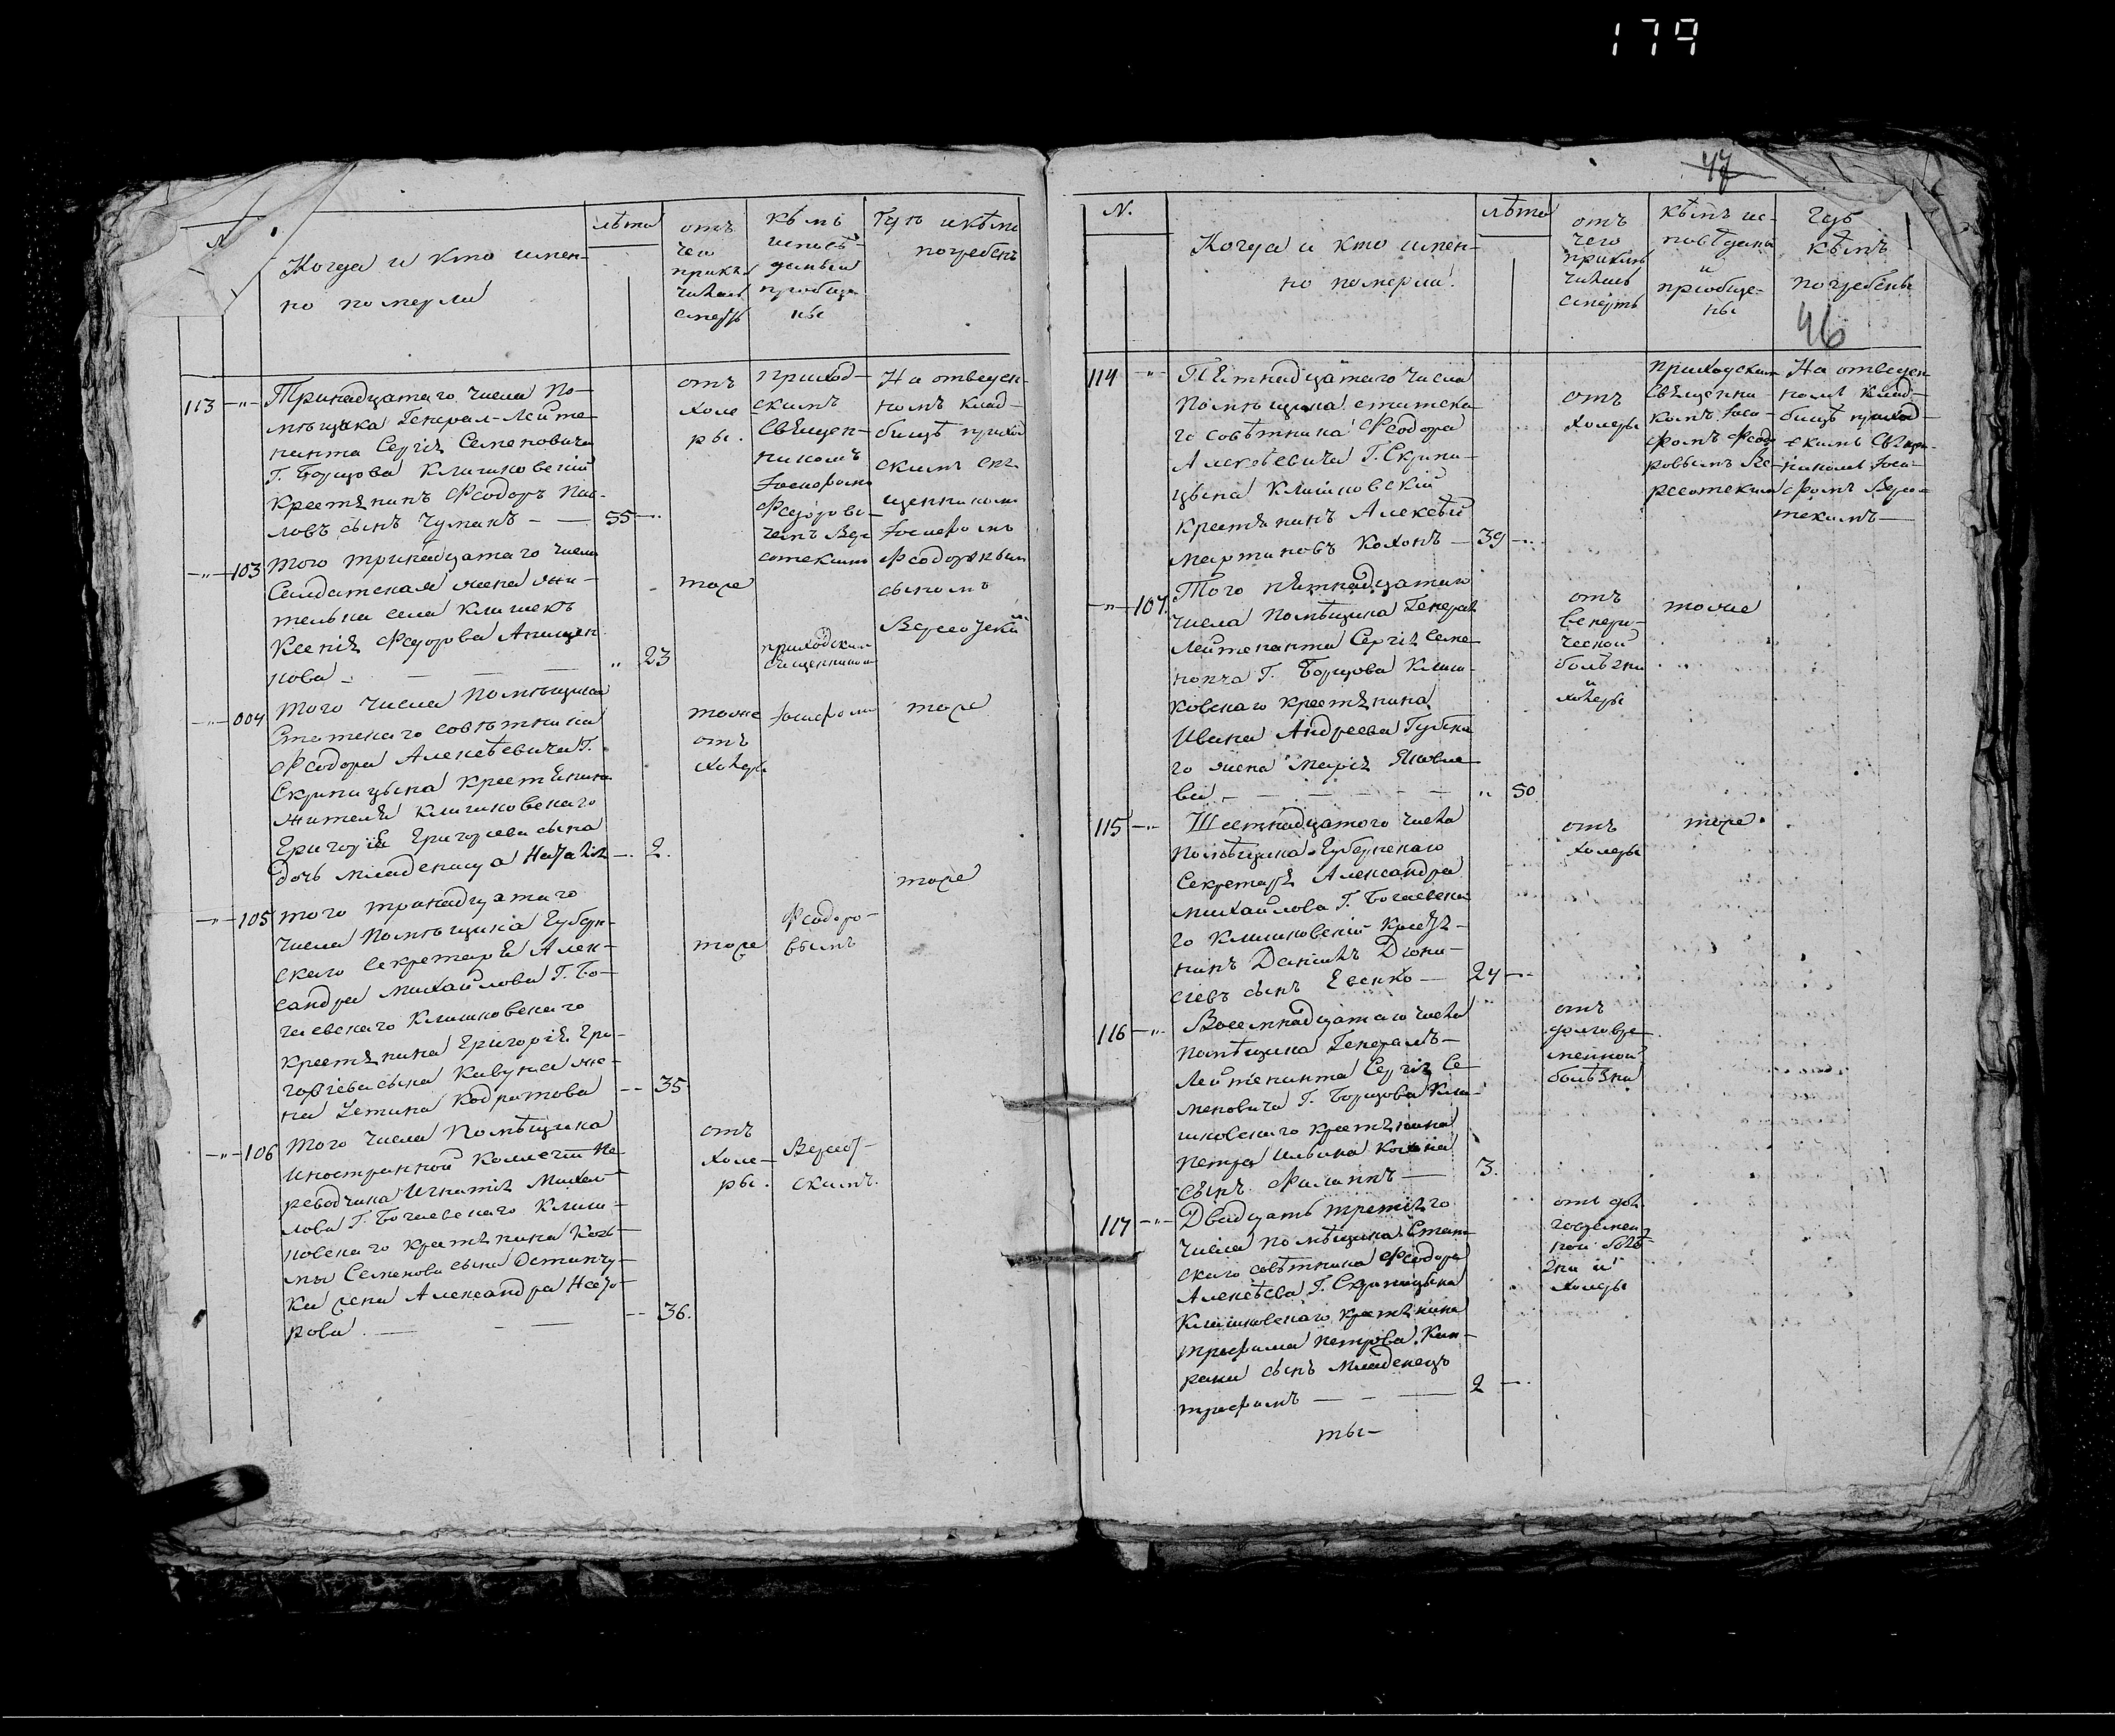 179
47
№
Когда и кто имен-
но померли
лѣта
отъ
чего
приклю
чилась
смерть
кѣмъ
исповѣ-
даны и
приобще
ны
Гдѣ и кѣмъ
погребенъ
113
Тринадцатаго числа по-
мѣщика Генерал-Лейте-
нанта Сергія Семеновича
Г. Борщова Клишковскій
крестянинъ Феодоръ Пав-
ловъ сынъ Чумакъ
55
отъ
холе
ры.
приход-
скимъ
священ-
никомъ
Іосифомъ
Федорови-
чемъ Вер-
есотскимъ
На отведен-
номъ клад-
бищѣ приход
скимъ свя-
щенникомъ
Іосифомъ
Феодоровымъ
сыномъ
103
того тринадцатаго числа
Салдатская жена жи-
телька села Клишекъ
Ксенія Федорова Анищен-
кова
23
тоже
приходскимъ
священникомъ
004
того числа помѣщика
Статскаго совѣтника
Феодора Алексѣевича Г.
Скрипицына крестянина
жителя Клишковскаго
Григорія Григорьева сына
дочь младеница Наталія
2.
тоже
отъ
холеры
Іосифомъ
тоже
105
того тринадцатаго
числа помѣщика Губерн-
скаго секретаря Алек-
сандра Михайлова Г. Бо-
гаевскаго Клишковскаго
крестянина Григорія Гри-
горіева сына Кавуна же-
на Кодратова
35
тоже
Феодоро-
вымъ
тоже
106
того числа помѣщика
Иностранной Коллегіи пе
реводчика Игнатія Михай
лова Г. Богаевскаго Клиш-
ковскаго крестянина Козь-
мы Семенова сына
жена Александра
рова
36.
отъ
холе-
ры.
скимъ.
N.
Когда и кто имен-
но померли.
лѣта
отъ
чего
приклю
чилась
смерть
кѣмъ ис-
повѣданы
и
приобще-
ны
Гдѣ
кѣмъ
погребены
46
114
Пятнадцатаго числа
помѣщика статска-
го совѣтника Феодора
Алексѣевича Г. Скрипи-
цына Клишковскій
крестянинъ Алексѣй
Мартиновъ Кохонъ
39
отъ
холеры
приходским
священни-
комъ Іоси-
фомъ Федо
ровымъ Ве-
ресотским
На отведен
номъ клад-
бищѣ приход
скимъ священ-
никомъ Іоси-
фомъ Верес-
отскимъ
107.
Того пятнадцатаго
числа помѣщика Генерал
Лейтенанта Сергія Семе-
новича Г. Борщова Клиш-
ковскаго крестянина
Ивана Андреева Губска
го жена Марія Яковле-
ва
50
отъ
венери-
ческой
болѣзни
и
холеры
тоже
115
Шестнадцатого числа
помѣщика Губернскаго
Секретаря Александра
Михайлова Г. Богаевска
го Клишковскій крестя-
нинъ Даніилъ Діони-
сіевъ сынъ Евенко
24
отъ
холеры
тоже
116
Восемнадцатаго числа
помѣщика Генералъ-
Лейтенанта Сергія Се-
меновича Г. Борщова Кли-
шковскаго крестянина
Петра Ильина
сынъ Филиппъ
3.
отъ
долговре
менной
болѣзни
117
Двадцать третяго
числа помѣщика Стат-
скаго совѣтника Феодора
Алексѣева Г. Скрипицына
Клишковскаго крестянина
Трофима Петрова
сынъ младенецъ
Трофимъ
2
отъ дол
говремен
ной болѣ
зни и
холеры
ты-